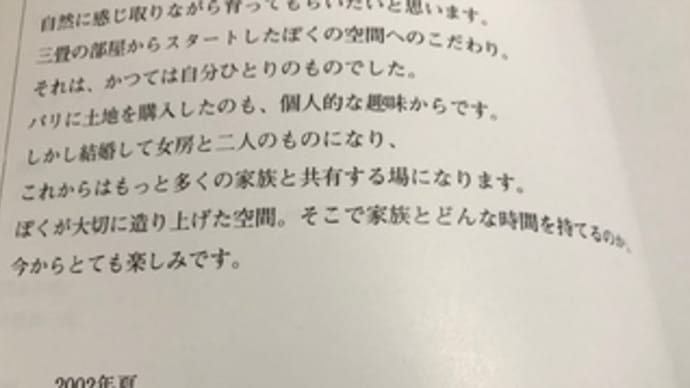 自然に感じ取りながら育ってもらいたいと思います。
三畳の部屋からスタートしたぼくの空間へのこだわり。
それは、かつては自分ひとりのものでした。
バリに土地を購入したのも、個人的な趣味からです。
しかし結婚して女房と二人のものになり、
これからはもっと多くの家族と共有する場になります。
ぼくが大切に造り上げた空間。そこで家族とどんな時間を持てるのか。
今からとても楽しみです。
2002年夏